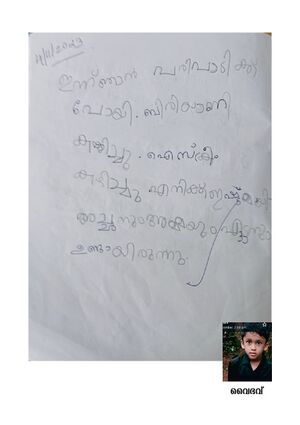 4/11/2023
ഇന്ന് ഞാൻ പരിപാടിക്ക്
പോയി. ബിരിയാണി
കഴിച്ചു. ഐസ്ക്രീം
കുടിച്ചു എനിക്ക് ഇഷ്ടമായി
അച്ഛനും അമ്മയും
ഉണ്ടായിരുന്നു.
വൈഭവ്